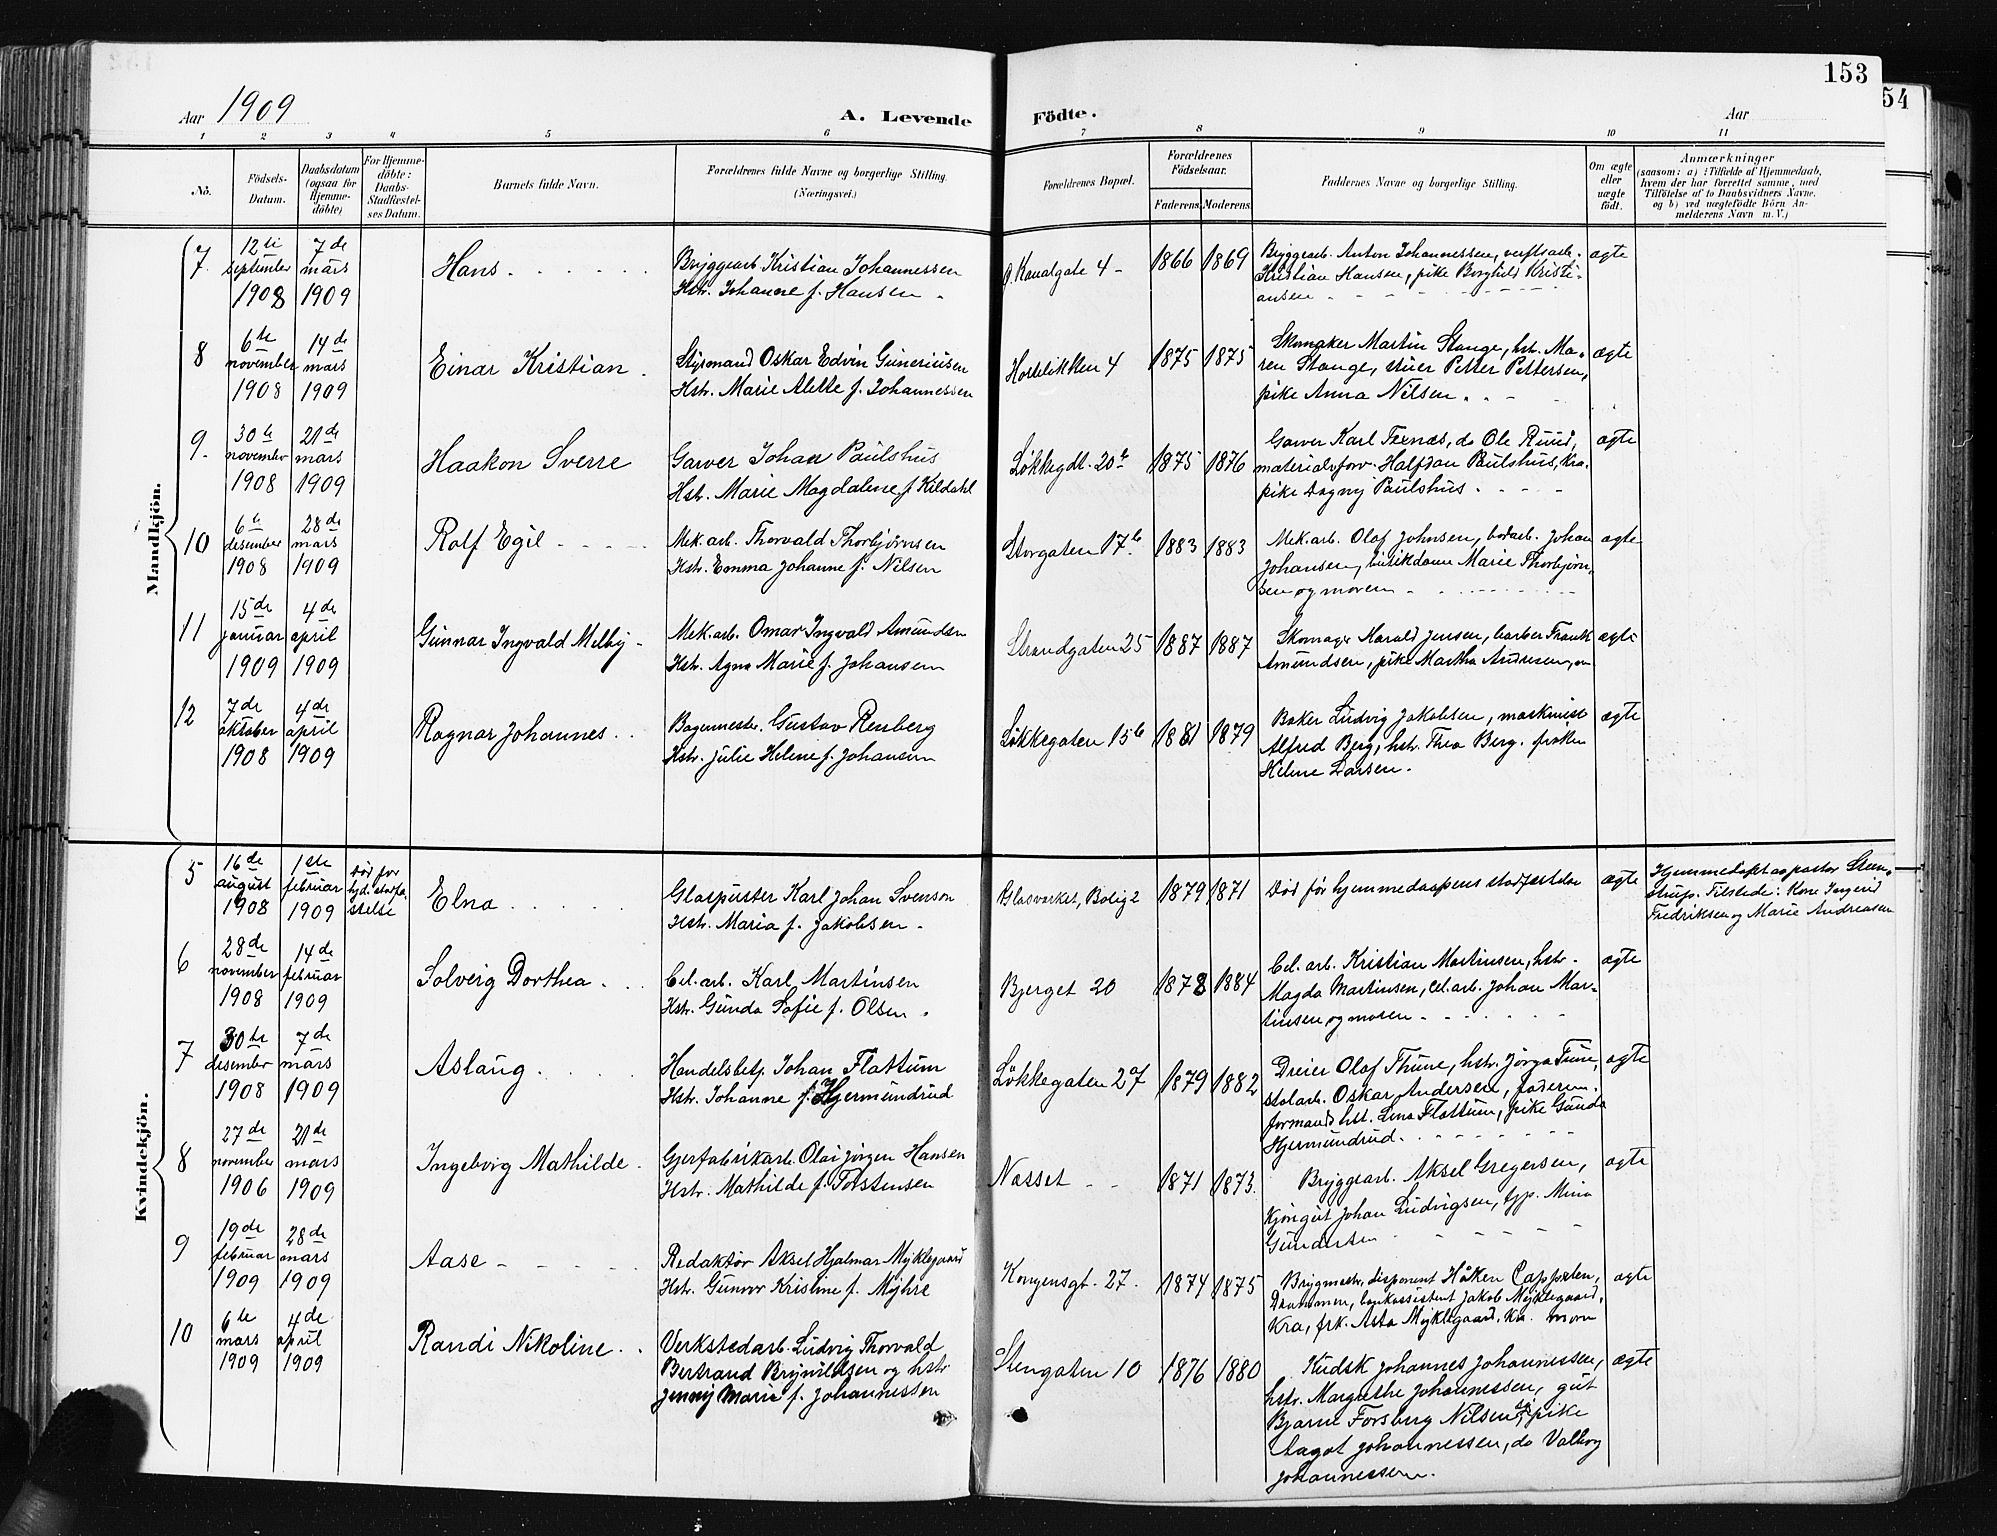 153
54
Aar 1909
A. Levende Födte.
Aar
1 2 3 4 5 6 7 8 9 10 11
No.
Födsels-
Datum.
Daabsdatum
(ogsaa för
Hjemme-
döbte)
For Hjemme-
döbte:
Daabs-
Stadfæstel-
ses Datum.
Barnets fulde Navn.
Forældrenes fulde Navne og borgerlige Stilling.
(Næringsvei.)
Forældrenes Bopæl.
Forældrenes
Födselsaar.
Faderens. Moderens.
Faddernes Navne og borgerlige Stilling.
Om ægte
eller
uægte
födt.
Anmærkninger
(saasom: a) i Tilfælde af Hjemmedaab,
hvem der har forrettet samme, med
Tilföielse af to Daabsvidners Navne,
og b) ved uægtefödte Börn An-
melderens Navn m. V.)
Mandkjön.
7.
12te
september
1908
7de
mars
1909
Hans
Bryggearb. Kristian Johannessen
Hstr. Johanne f. Hansen
Ø. Kanalgate 4
1866 1869
Bryggearb. Anton Johannessen, verftsarb.
Kristian Hansen, pike Borghild Kristi-
ansen
ægte
8
6te
november
1908
14de
mars
1909
Einar Kristian
Styrmand Oskar Edvin Guneriusen
Hstr. Marie Alette f. Johannessen
4
1875 1875
Skomaker Martin Stange, hst. Ma-
ren Stange, stuer Petter Pettersen,
pike Anna Nilsen
ægte
9.
30te
november
1908
21de
mars
1909
Haakon Sverre
Garver Johan Paulshus
Hstr. Marie Magdalene f. Kildahl
Løkkegdt. 20b
1875 1876
Garver Karl Texnæs, do Ole Ruud,
materialforv. Halfdan Paulshus, Kra.
pike Dagny Paulshus
ægte
10
6te
desember
1908
28de
mars
1909
Rolf Egil
Mek. arb. Thorvald Thorbjörnsen
Hstr. Emma Johanne f. Nilsen
Storgaten 17b
1883 1883
Mek. arb. Olaf Johnsen, bodarb. Johan
Johansen, butikdame Marie Thorbjørn-
sen og moren
ægte
11
15de
januar
1909
4de
april
1909
Gunnar Ingvald Melby
Mek. arb. Omar Ingvald Amundsen
Hstr. Agna Marie f. Johansen
Strandgaten 25
1887 1887
Skomager Harald Jensen, barber Frank
Amundsen, pike Martha Andresen, m
ægte
12
7de
oktober
1908
4de
april
1909
Ragnar Johannes
Bagermester. Gustav Renberg
Hstr. Julie Helene f. Johansen
Løkkegaten 15b
1881 1879
Baker Ludvig Jakobsen, maskinist
Alfred Berg, hstr. Thea Berg. frøken
Helene Larsen.
ægte
Kvindekjön.
5
16de
august
1908
1ste
februar
1909
Død før
hjd. stadfæ-
stelse
Elna
Glaspuster Karl Johan Svenson
Hstr. Maria f. Jakobsen
Glasværket, Bolig 2
1879 1871
Død før hjemmedaapens stadfæstelse
ægte
Hjemmedøpt av pastor Steen-
strup. Tilstede: Kone Ingerid
Fredriksen og Marie Andreasen
6
28de
november
1908
14de
februar
1909
Solveig Dorthea
Cel. arb. Karl Martinsen
Hstr. Gunda Sofie f. Olsen
Bjerget 20
1878 1884
Cel. arb. Kristian Martinsen, hstr.
Magda Martinsen, cel. arb. Johan Mar-
tinsen og moren
ægte
7
30te
desember
1908
7de
mars
1909
Aslaug
Handelsbetj. Johan Flattum
Hstr. Johanne f. Hjermundrud
Løkkegaten 27
1879 1882
Dreier Olaf Thune, hstr. Jørga Tune,
stolarb. Oskar Andersen, faderen.
formands hst. Lina Flattum, pike Gunda
Hjermundrud.
ægte
8
27de
november
1906
21de
mars
1909
Ingeborg Mathilde
Gjærfabrikarb. Olai Jørgen Hansen
Hstr. Mathilde f. Torstensen
Næsset
1871 1873
Bryggearb. Aksel Gregersen,
Kjørigut Johan Ludvigsen, tjp. Mina
Gundersen
ægte
9
19de
februar
1909
28de
mars
1909
Aase
Redaktør Aksel Hjalmar Myklegaard
Hstr. Gunvor Kristine f. Myhre
Kongensgt. 27.
1874 1875
Brygmestr. disponent Håken Cappelen,
Drammen, bankassistent Jakob Myklegaard,
Kra, frk. Asta Myklegaard, Kra. moren
ægte
10
6te
mars
1909
4de
april
1909
Randi Nikoline
Verkstedarb. Ludvig Thorvald
Bertrand Brynildsen og hstr
Jenny Marie f. Johannessen
Stengaten 10
1876 1880
Kudsk Johannes Johannessen,
hstr. Margrethe Johannessen, gut
Bjarne Forsberg Nilsen, pike
Aagot Johannessen, do Valborg
Johannessen.
ægte